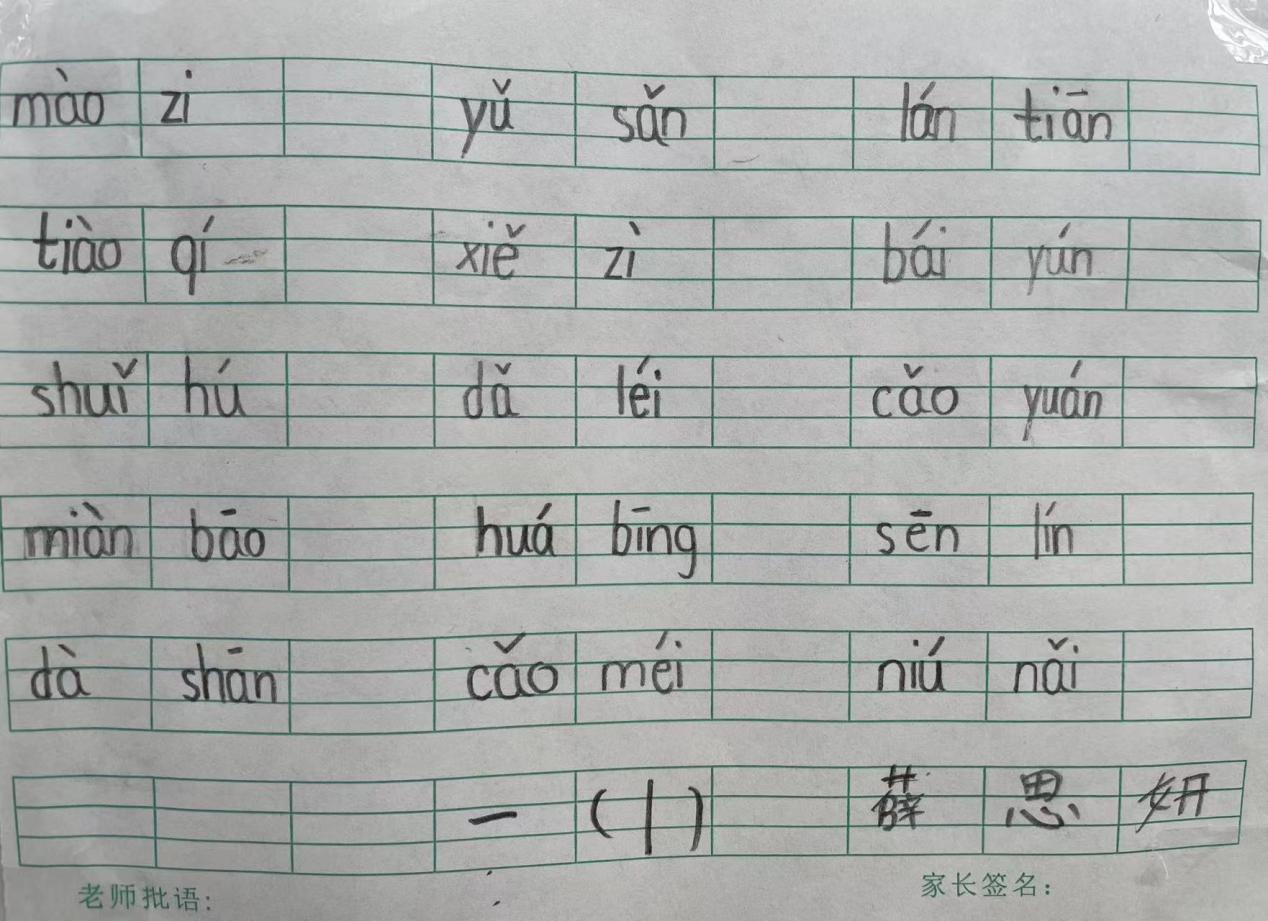 mào zi yǔ sǎn lán tiān
tiào qí xiě zì bái yún
shuǐ hú dǎ léi cǎo yuán
miàn bāo huá bīng sēn lín
dà shān cǎo méi niú nǎi
一 (丨) 薛思妍
老师批语: 家长签名: